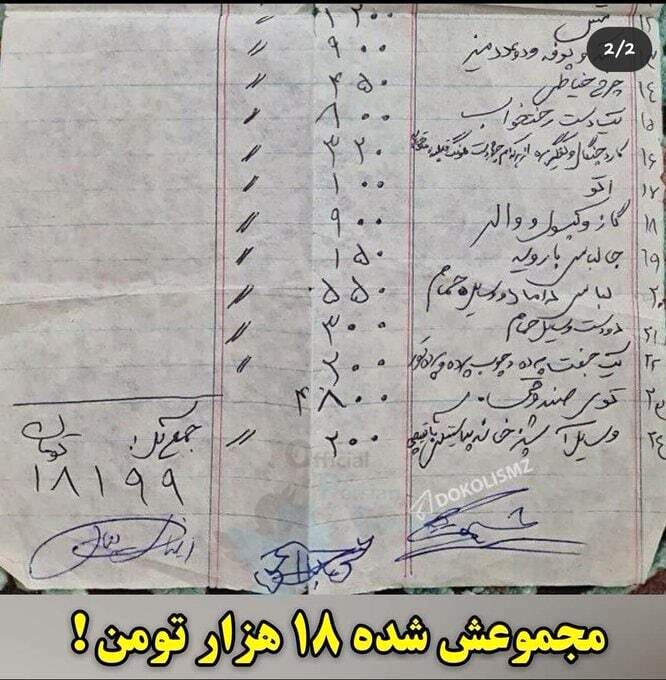 2/2
۱۲۰۰
۱۳ و بوفه و دو عدد میز ۹۰۰ //
۱۴ چرخ خیاطی ۴۵۰ //
۱۵ یک دست رختخواب ۸۰۰ //
۱۶ کارد چنگال و کفگیر ۳۳۰ //
۱۷ اتو ۱۰۰ //
۱۸ گاز و کپسول و والر ۹۰۰ //
۱۹ جالباسی با رویه ۱۵۰ //
۲۰ لباس داماد و وسیله حمام ۵۵۰ //
۲۱ دو دست وسیل حمام ۳۰۰ //
۲۲ یک جفت پرده و چوب پرده ۲۰۰ //
۲۳ توی صندوق ۴۸۰۰
۲۴ وسیل آشپزخانه ۲۰۰ //
جمع کل: تومان
۱۸۱۹۹
DOKOLISMZ
Official
مجموعش شده ۱۸ هزار تومن !